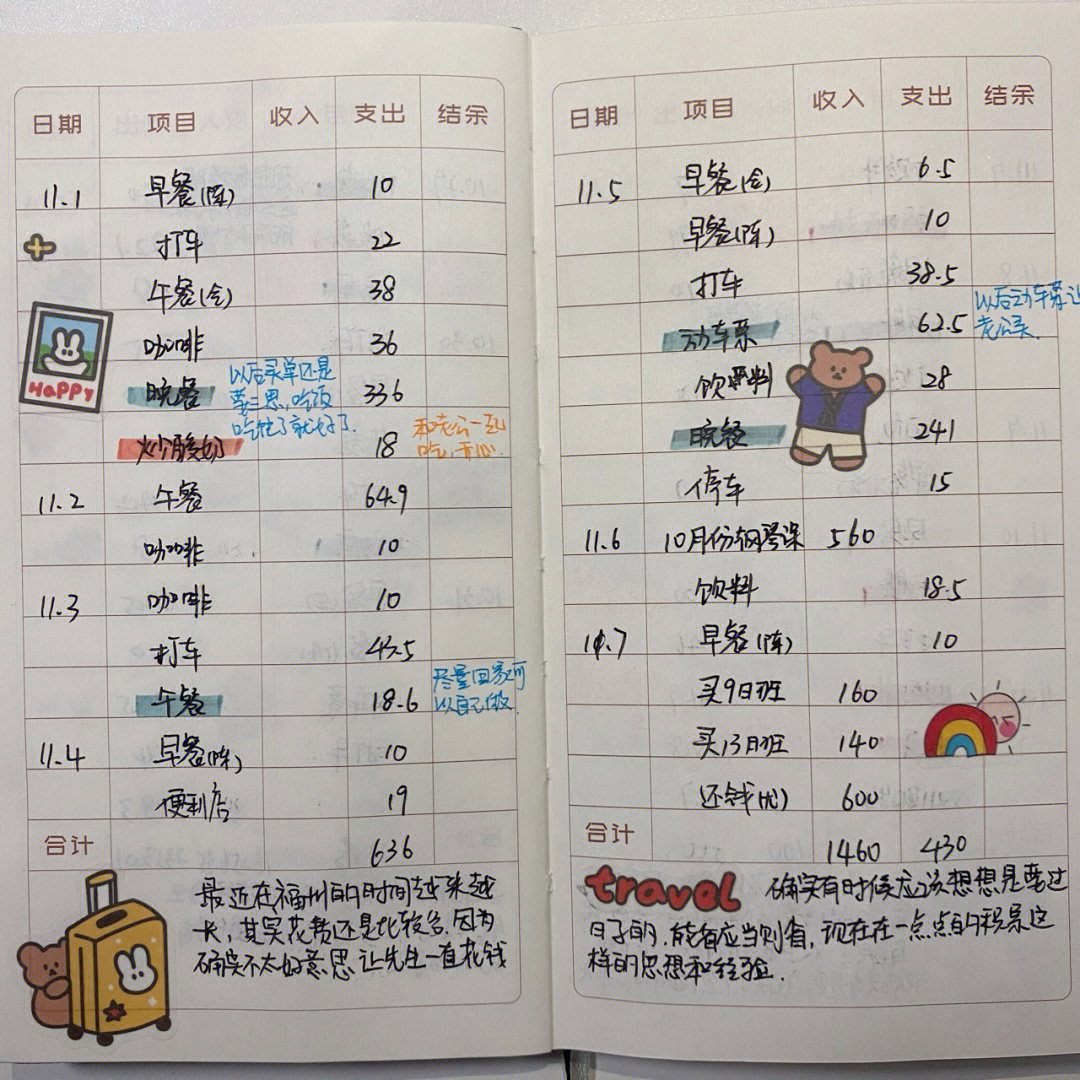 日期 项目 收入 支出 结余
11.1 早餐(陈) 10
打车 22
午餐(仝) 38
咖啡 36
晚餐 336
以后买单还是
要三思,吃饭
吃饱了就好了.
炒酸奶 18
和老公一起
吃,开心.
11.2 午餐 64.9
咖啡 10
11.3 咖啡 10
打车 43.5
午餐 18.6
尽量回家可
以自己做
11.4 早餐(陈) 10
便利店 19
合计 636
最近在福州的时间越来越
长,其实花费还是比较多,因为
确实不太好意思让先生一直花钱
HAPPY
日期 项目 收入 支出 结余
11.5 早餐(仝) 6.5
早餐(陈) 10
打车 38.5
动车票 62.5
以后动车票让
老公买.
饮料 28
晚餐 241
停车 15
11.6 10月份钢琴课 560
饮料 18.5
11.7 早餐(陈) 10
买9日班 160
买13日班 140
还钱(优) 600
合计 1460 430
travel 确实有时候应该想想是要过
日子的,能省应当则省,现在在一点点的积累这
样的思想和经验.